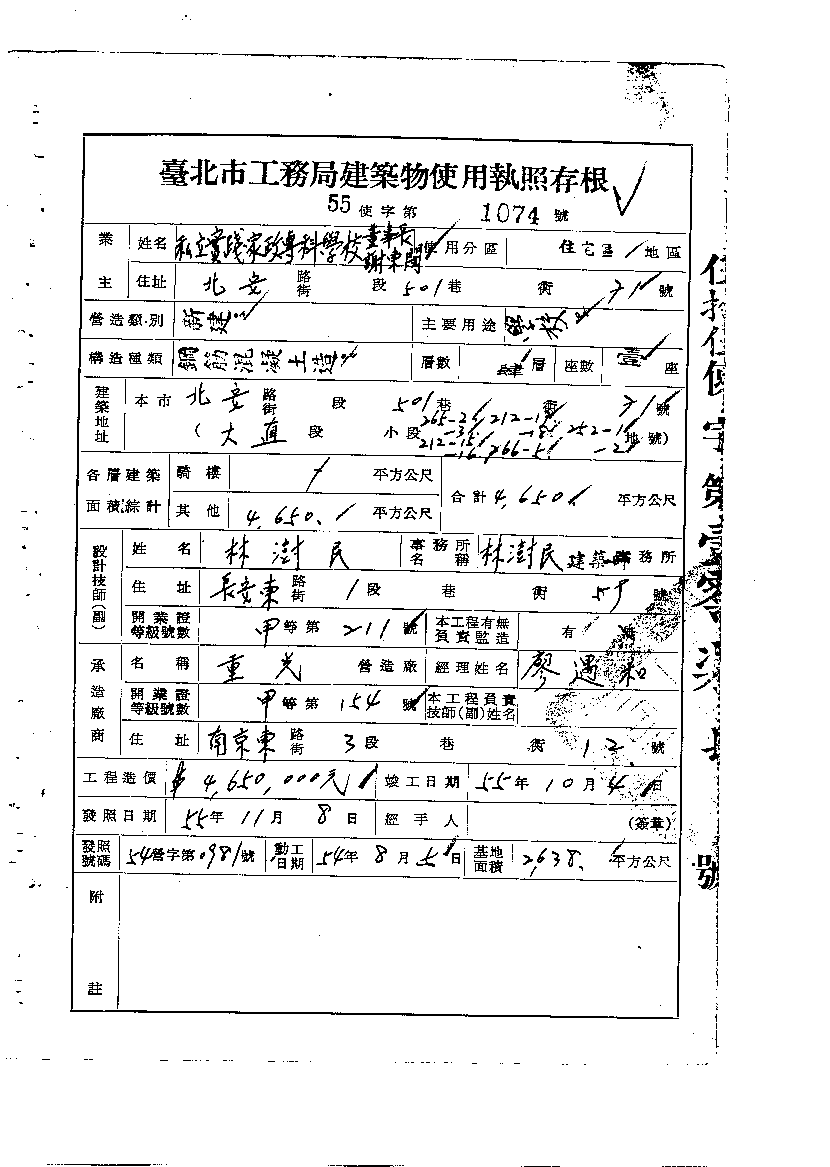 臺北市工務局建築物使用執照存根
55使字第 1074 號
業主 姓名 私立實踐家政專科學校董事長謝東閔 使用分區 住宅區 地區
住址 北安路街 段 501巷 衖 號
營造類別 新建 主要用途 學校
構造種類 鋼筋混凝土造 層數 肆層 座數 壹座
建築地址 本市 北安路街 段 501巷 衖 號
(大直段 小段 地號)
各層建築面積綜計 騎樓 平方公尺 合計 4,650. 平方公尺
其他 4,650. 平方公尺
設計技師(副) 姓名 林澍民 事務所名稱 林澍民建築師事務所
住址 長安東路街 1段 巷 衖 號
開業證等級號數 甲等第 211號 本工程有無負責監造 有
承造廠商 名稱 重光 營造廠 經理姓名 廖遇和
開業證等級號數 甲等第 154號 本工程負責技師(副)姓名
住址 南京東路街 3段 巷 衖 12 號
工程造價 $4,650,000元 竣工日期 55年10月4日
發照日期 55年11月8日 經手人 (簽章)
發照號碼 54營字第0981號 動工日期 54年8月5日 基地面積 2,638. 平方公尺
附註